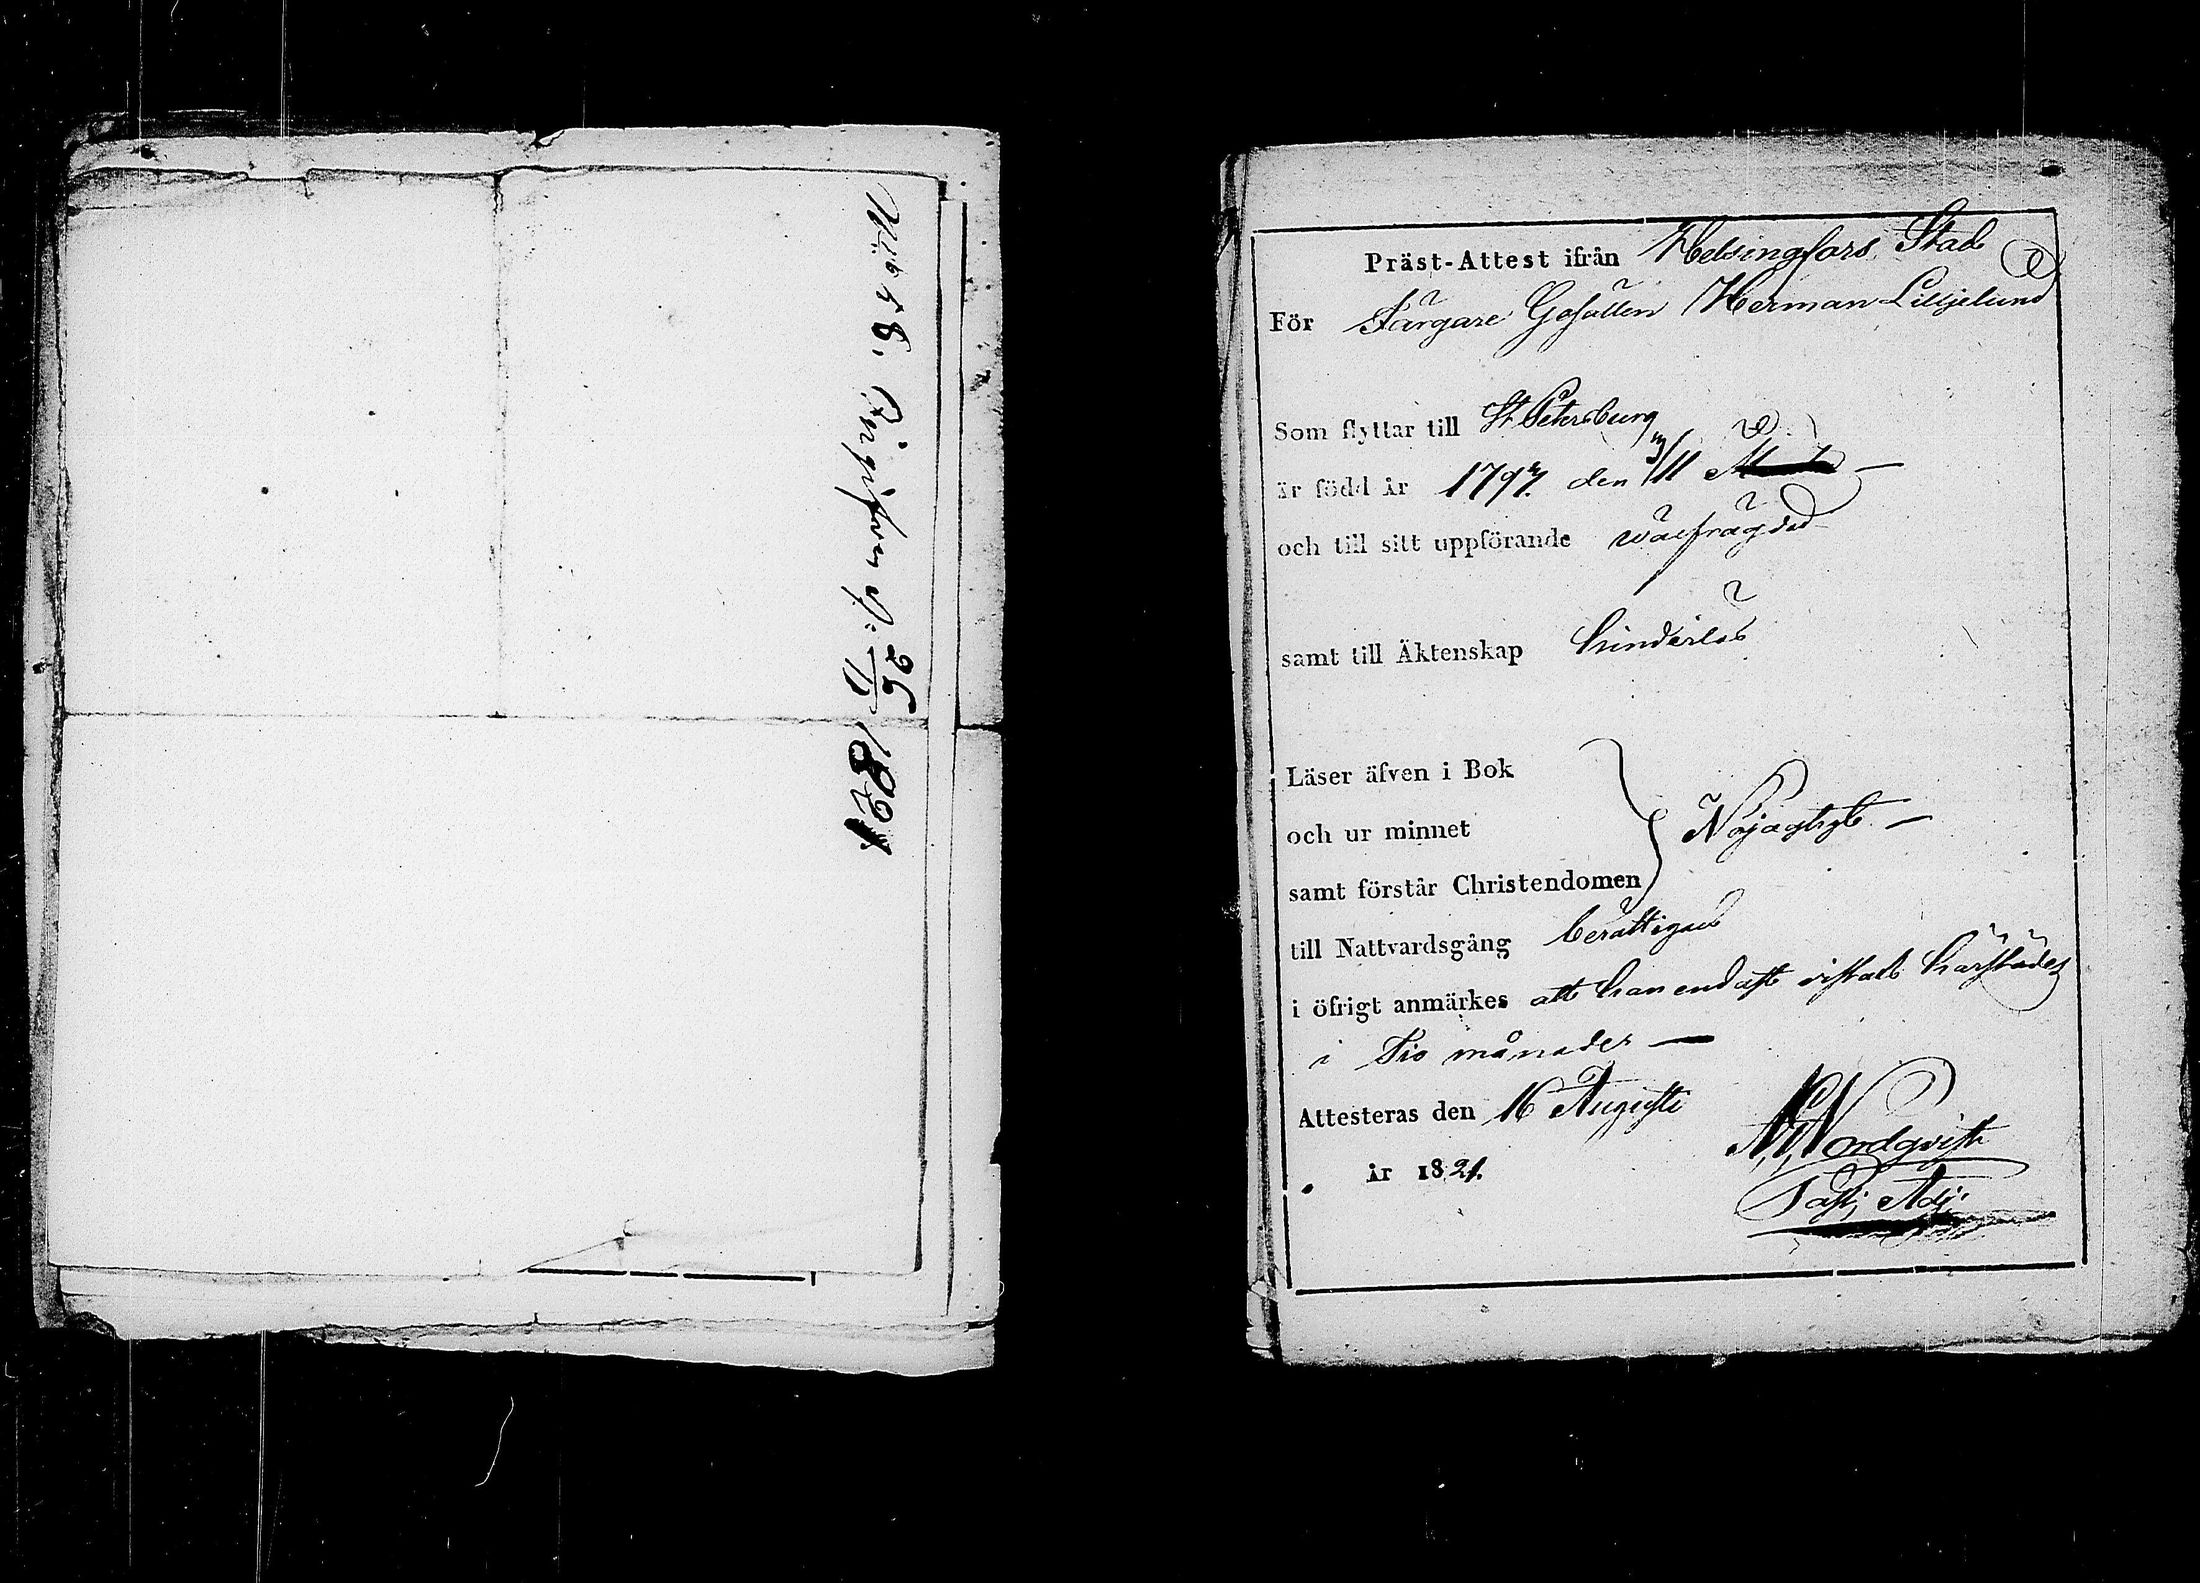 1821
Präst-Attest ifrån Helsingfors Stad
För Färgare Gesällen Herman Liljelund
Som flyttar till St Petersburg
är född år 1797. den 3/11
och till sitt uppförande wälfrägdad
samt till Äktenskap hinderlös
Läser äfven i Bok
och ur minnet
samt förstår Christendomen
Nöjagtigt
till Nattvardsgång berättigad
i öfrigt anmärkes att han endast vistats härstädes
i Tio månader
Attesteras den 16 Augusti
år 1821.
Nordqvist
Past. Adj.